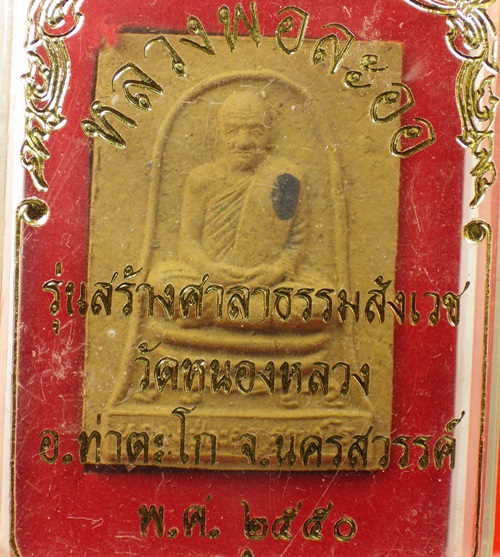 หลวงพ่อละออง
รุ่นสร้างศาลาธรรมสังเวช
วัดหนองหลวง
อ.ท่าตะโก จ.นครสวรรค์
พ.ศ. ๒๕๕๐